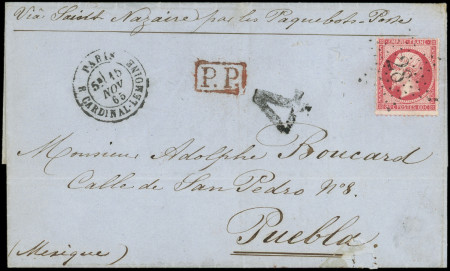 Viâ Saint Nazaire par les Paquebots-Poste
PARIS
5E/ 15
NOV
65
R. CARDINAL-LEMOINE
P.P.
4
EMPIRE FRANC
38
Monsieur Adolphe Boucard
Calle de San Pedro Nº 8.
Puebla
(Mexique)